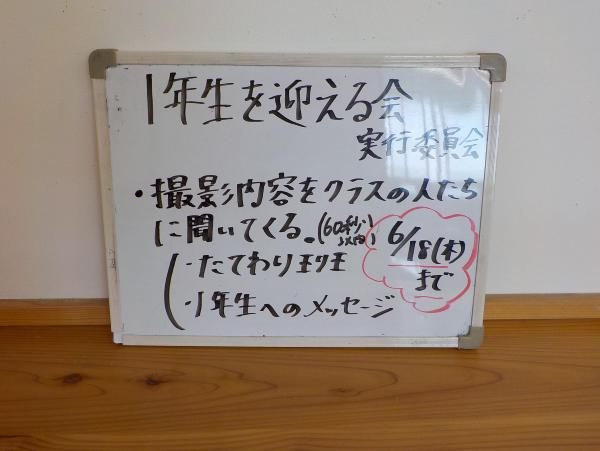 1年生を迎える会
実行委員会
・撮影内容をクラスの人たち
に聞いてくる。(60秒以内)
・たてわり班
・1年生へのメッセージ
6/18(木)
まで